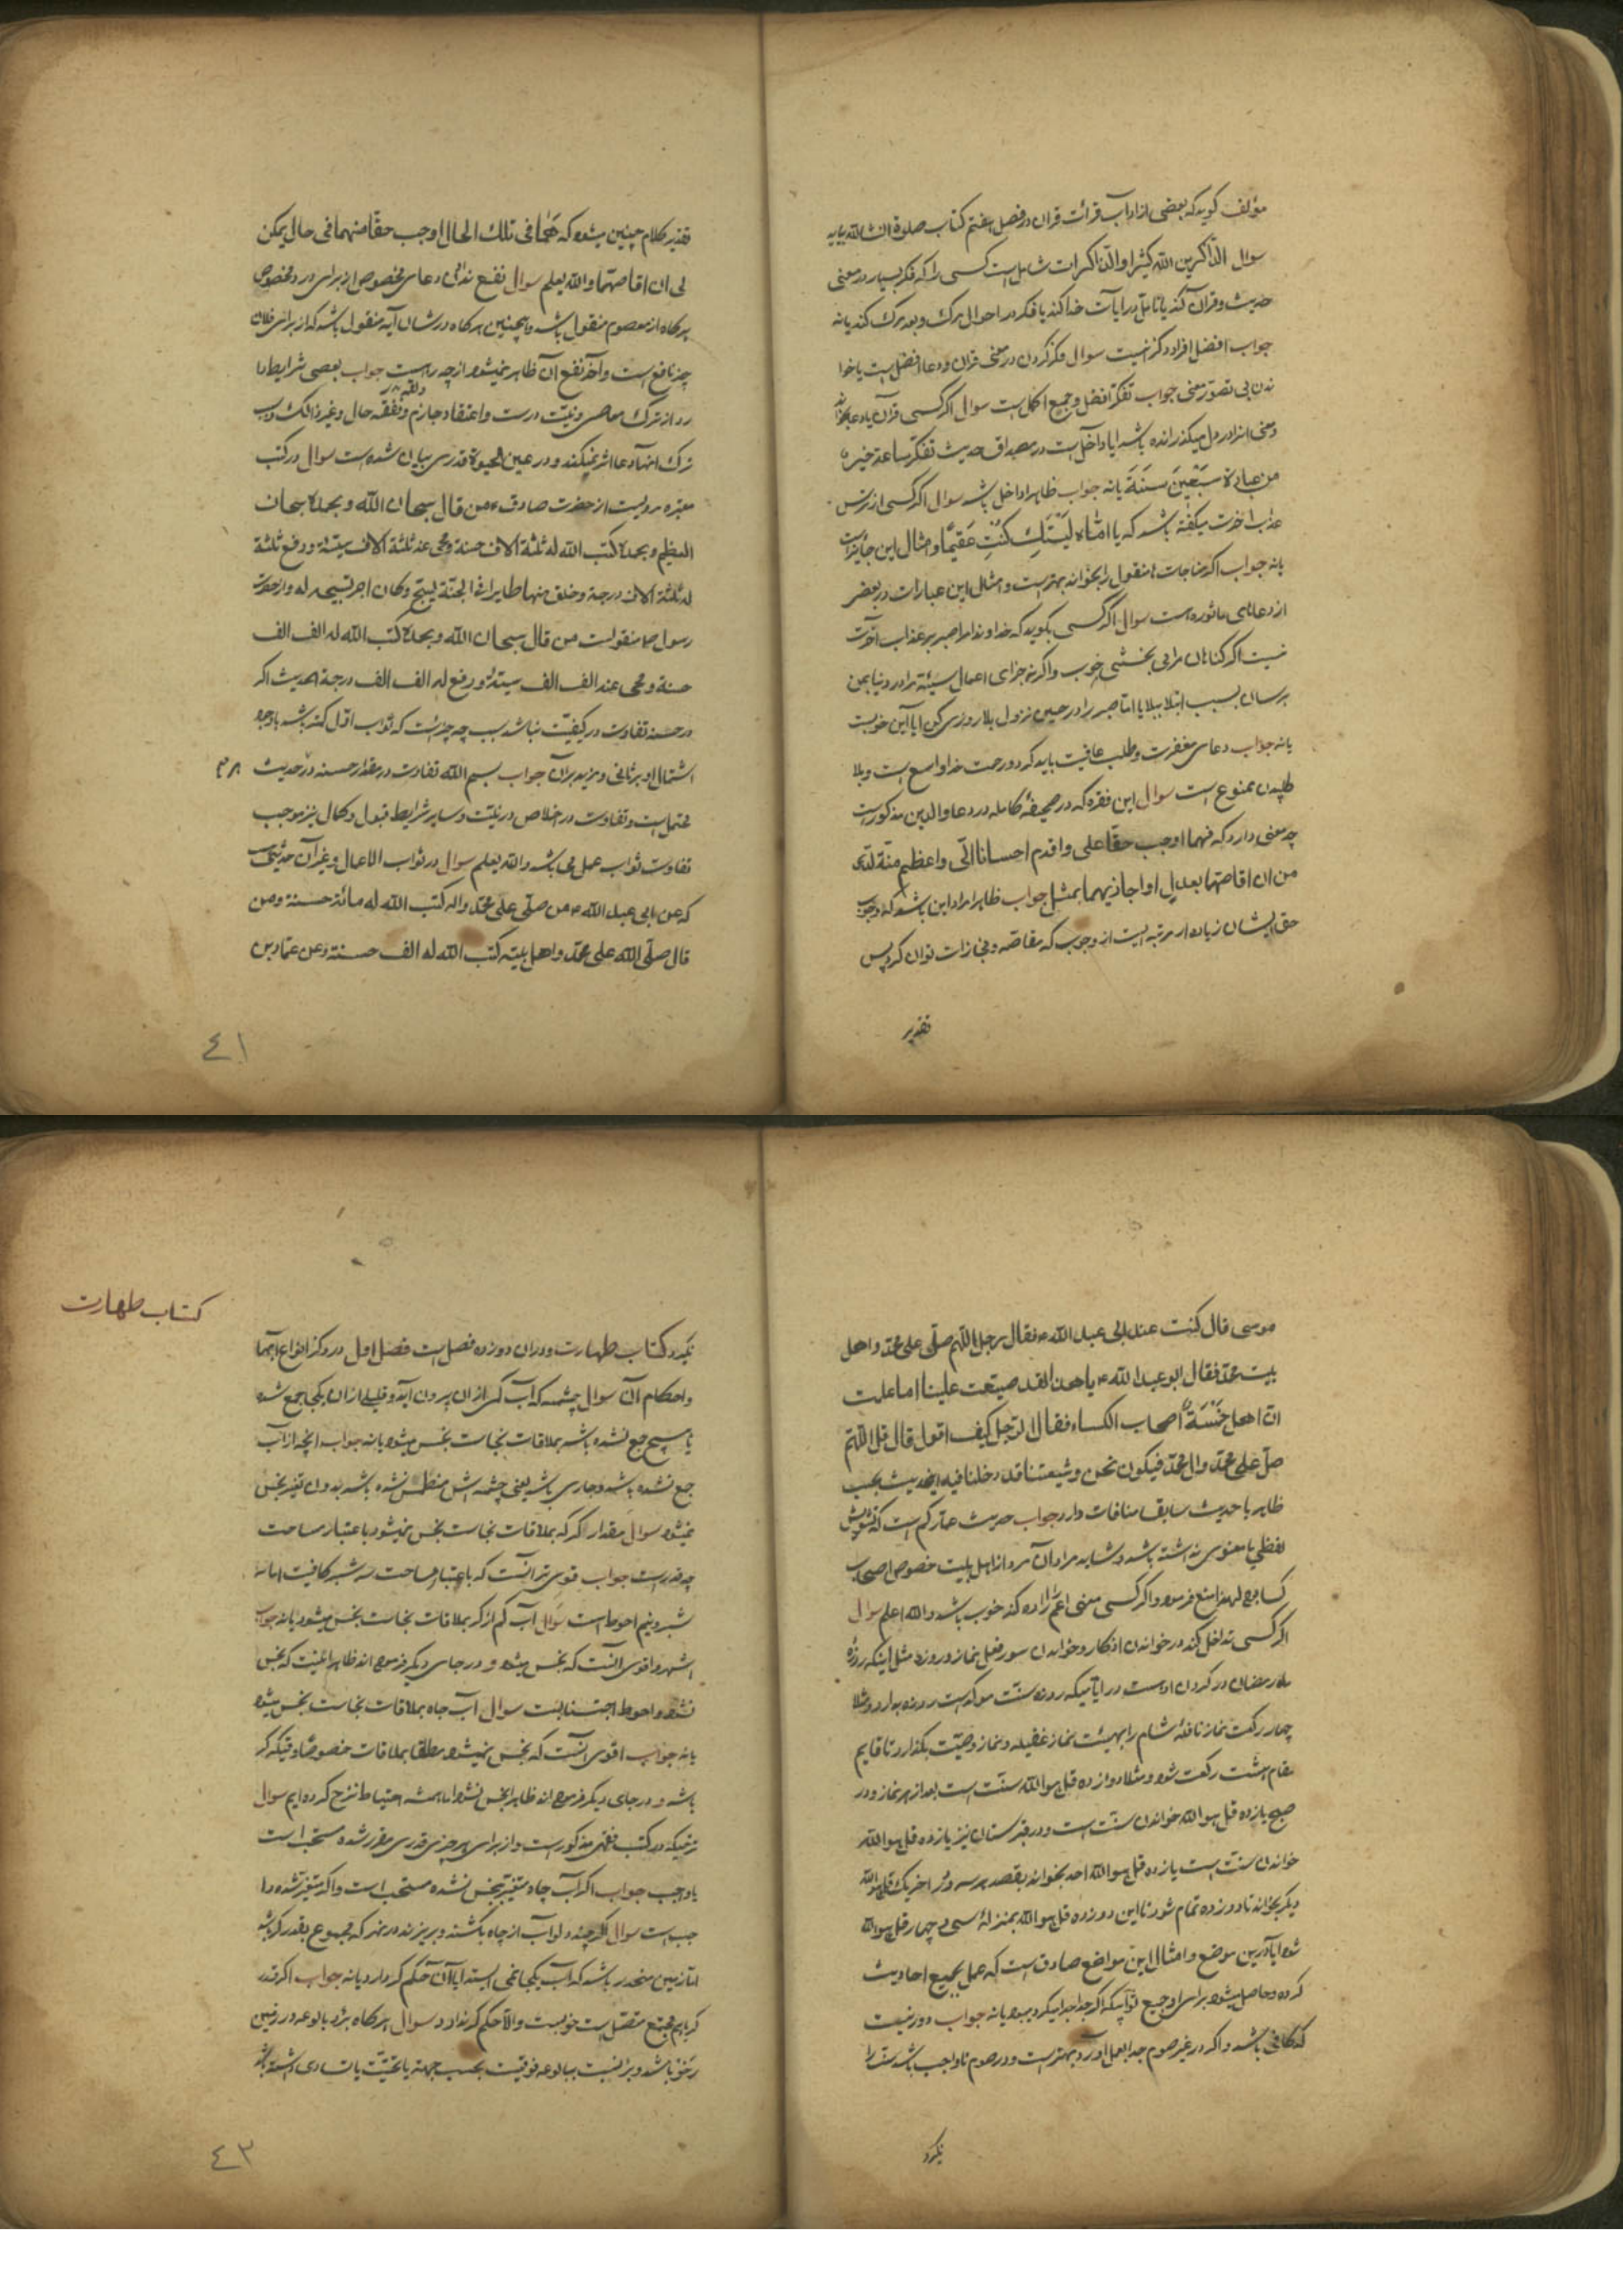 مؤلف گوید که بعضی از اداب قرائت قران در فصل هفتم کتاب صلوة انشاالله بیاید
سوال الذاکرین الله کثیرا والذاکرات شامل است کسی را که فکر بسیار در معنی
حدیث و قران کند یا تامل در ایات خدا کند یا فکر در احوال مرک و بعد مرک کند یا نه
جواب افضل افراد ذکر انست سوال فکر کردن در معنی قران و دعا افضل است یا خوا
ندن بی تصور معنی جواب تفکر افضل و جمع اکمل است سوال اگر کسی قران یا دعا بخواند
و معنی انرا در دل میگذرانده باشد ایا داخل است در مصداق حدیث تفکر ساعة خیر
من عبادة سبعین سنة یا نه جواب ظاهرا داخل باشد سوال اگر کسی از ترس
عذاب اخرت میگفته باشد که یا اماه لیتک کنت عقیما و امثال این جایز است
یا نه جواب اگر مناجات منقول را بخواند بهتر است و مثل این عبارات در بعضی
از دعاهای ماثوره است سوال اگر کسی بگوید که خداوندا مرا صبر بر عذاب اخرت
نیست اگر گناهان مرا می بخشی خوب و اگر نه جزای اعمال سیئه مرا در دنیا بمن
برسان بسبب ابتلا ببلایا اما صبر را در حین نزول بلا روزی کن ایا این خوبست
یا نه جواب دعای مغفرت و طلب عافیت باید کرد و رحمت خدا واسع است و بلا
طلبیدن ممنوع است سوال این فقره که در صحیفه کامله در دعاء والدین مذکور است
چه معنی دارد که فهما اوجب حقا علی و اقدم احسانا الی و اعظم منة لدی
من ان اقاصهما بعدل او اجازیهما بمثل جواب ظاهرا مراد این باشد که وجوب
حق ایشان زیاده از مرتبه ایست از وجوب که مقاصه و مجازات توان کرد پس
تقدیر
تقدیر کلام چنین میشود که هما فی تلک الحال اوجب حقا منهما فی حال یمکن
لی ان اقاصهما والله یعلم سوال نفع ندادن دعای مخصوص از برای درد مخصوص
هرگاه از معصوم منقول باشد و همچنین هرگاه در شان آیه منقول باشد که از برای فلان
چیز نافع است و آخر نفع آن ظاهر نمیشود از چه راه است جواب بعضی شرایط دا
رد از ترک معاصی و نیت درست و اعتقاد جازم و تفقه حال و غیر ذالک و سبب
ترک انها دعا اثر نمیکند و در عین الحیوة قدری بیان شده است سوال در کتب
معتبره مرویست از حضرت صادق ع من قال سبحان الله و بحمده سبحان
العظیم و بحمده کتب الله له ثلثة الاف حسنة و محی عنه ثلثة الاف سیئة و رفع ثلثة
له ثلثة الاف درجة و خلق منها طایرا فی الجنة یسبح و کان اجر تسبیحه له و از حضرت
رسول ص منقولست من قال سبحان الله و بحمده کتب الله له الف الف
حسنة و محی عنه الف الف سیئة و رفع له الف الف درجة الحدیث اگر
در حسنه تفاوت در کیفیت نباشد سبب چه چیز است که ثواب اول کمتر باشد با وجود
اشتمال او بر ثانی و مزید بران جواب بسم الله تفاوت در مقدار حسنه در حدیث
محتمل است و تفاوت در اخلاص در نیت و سایر شرایط قبول و کمال نیز موجب
تفاوت ثواب عمل می باشد والله یعلم سوال در ثواب الاعمال و غیر آن حدیثیست
که عن ابی عبد الله ع من صلی علی محمد و اله کتب الله له مائة حسنة و من
قال صلی الله علی محمد و اهل بیته کتب الله له الف حسنة و عن عمار بن
٤١
موسی قال کنت عند ابی عبد الله ع فقال رجل اللهم صلی علی محمد و اهل
بیت محمد فقال ابو عبد الله ع یا هذا لقد ضیقت علینا اما علمت
ان اهل خمسة اصحاب الکساء فقال الرجل کیف اقول قال قل اللهم
صل علی محمد و ال محمد فیکون نحن و شیعتنا قد دخلنا فیه اینحدیث بحسب
ظاهر با حدیث سابقا منافات دارد جواب حدیث عمار کم است که تشویش
لفظی یا معنوی نداشته باشد و شاید مراد آن مرد از اهل بیت خصوص اصحاب
کسا بوده لهذا منع فرمود و اگر کسی معنی اعم اراده کند خوب باشد والله اعلم سوال
اگر کسی تداخل کند در خواندن اذکار و خواندن سور و فعل نماز و روزه مثل اینکه روزه
ماه رمضان در گردن اوست در ایامیکه روزه سنت موکد است روزه بدارد و مثلا
چهار رکعت نماز نافله شام را بهیئت نماز غفیله و نماز وصیت بگذارد تا قایم
مقام هشت رکعت شود و مثلا دوازده قل هو الله سنت است بعد از هر نماز و در
صبح یازده قل هو الله خواندن سنت است و در قبرستان نیز یازده قل هو الله
خواندن سنت است یازده قل هو الله احد بخواند بقصد هر سه و در اخر یک قل هو الله
دیگر بخواند تا دوازده تمام شود تا این دوازده قل هو الله بمنزله سی و چهار قل هو الله
شود ایا در این موضع و امثال این مواضع صادق است که عمل بجمیع احادیث
کرده و حاصل میشود برای او جمیع ثوابیکه اگر جدا جدا میکرد میبود یا نه جواب دور نیست
که کافی باشد و اگر در غیر صوم جدا بعمل آورد بهتر است و در صوم تا واجب باشد سنت را
نگیرد
کتاب طهارت
نگیرد کتاب طهارت و دران دوازده فصل است فصل اول در ذکر انواع ابها
و احکام آن سوال چشمه که آب کمی از ان بیرون آید و قلیلی از ان یکجا جمع شده
یا هیچ جمع نشده باشد بملاقات نجاست نجس میشود یا نه جواب انچه از آب
جمع نشده باشد و جاری باشد یعنی چشمه اش منطمس نشده باشد بدون تغیر نجس
نمیشود سوال مقدار کر که بملاقات نجاست نجس نمیشود باعتبار مساحت
چه قدر است جواب قوی تر انست که باعتبار مساحت سه شبر کافیست اما سه
شبر و نیم احوط است سوال آب کم از کر بملاقات نجاست نجس میشود یا نه جواب
اشهر و اقوی انست که نجس میشود و در جای دیگر فرموده اند ظاهرا انیست که نجس
نشود و احوط اجتنابست سوال آب چاه بملاقات نجاست نجس میشود
یا نه جواب اقوی انست که نجس نمیشود مطلقا بملاقات خصوصا وقتیکه کر
باشد و در جای دیگر فرموده اند ظاهرا نجس نشود اما همیشه احتیاط نزح کرده ایم سوال
نزحیکه در کتب فقهی مذکور است و از برای هر چیزی قدری مقرر شده مستحب است
یا واجب جواب اگر آب چاه متغیر نجس نشده مستحب است و اگر متغیر شده وا
جب است سوال اگر چند دلو آب از چاه بکشند و بریزند در نهر که مجموع بقدر کر باشد
اما زمین منحدر باشد که آب یکجا نمی ایستد ایا آن حکم کر دارد یا نه جواب اگر قدر
کر با هم مجتمع متصل است خوبست والا حکم کر ندارد سوال هرگاه بئر و بالوعه در زمین
رخو باشد و بئر نسبت ببالوعه فوقیت بحسب جهة یا تحتیت یا تساوی داشته باشد
٤٣